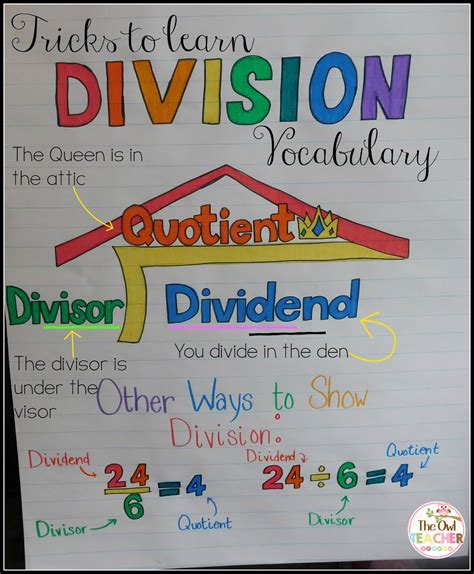 Tricks to learn
DIVISION
Vocabulary
The Queen is in
the attic
Quotient
Divisor
Dividend
You divide in the den
The divisor is
under the
visor
Other Ways to Show
Division:
Dividend
24
6
=4
Divisor
Quotient
Dividend
Quotient
24÷6=4
Divisor
The Owl
TEACHER